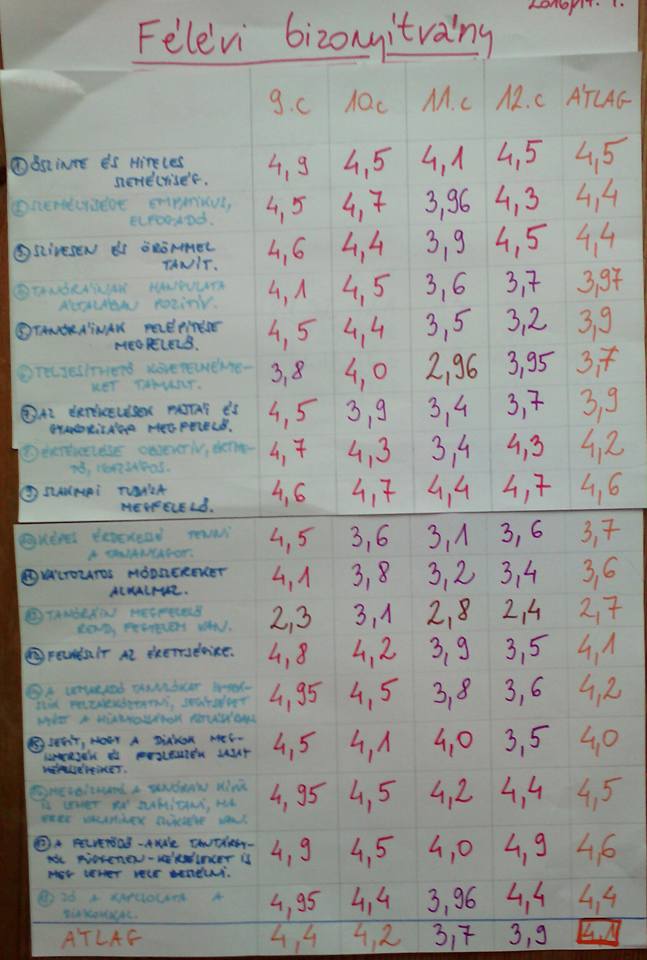 Félévi bizonyítvány
9.c 10.c 11.c 12.c ÁTLAG
① ŐSZINTE ÉS HITELES
SZEMÉLYISÉG. 4,9 4,5 4,1 4,5 4,5
② SZEMÉLYISÉGE EMPATIKUS,
ELFOGADÓ. 4,5 4,7 3,96 4,3 4,4
③ SZÍVESEN ÉS ÖRÖMMEL
TANÍT. 4,6 4,4 3,9 4,5 4,4
④ TANÓRÁINAK HANGULATA
ÁLTALÁBAN POZITÍV. 4,1 4,5 3,6 3,7 3,97
⑤ TANÓRÁINAK FELÉPÍTÉSE
MEGFELELŐ. 4,5 4,4 3,5 3,2 3,9
⑥ TELJESÍTHETŐ KÖVETELMÉNYE-
KET TÁMASZT. 3,8 4,0 2,96 3,95 3,7
⑦ AZ ÉRTÉKELÉSEK FAJTÁI ÉS
GYAKORISÁGA MEGFELELŐ. 4,5 3,9 3,4 3,7 3,9
⑧ ÉRTÉKELÉSE OBJEKTÍV, ÉRTHE-
TŐ, IGAZSÁGOS. 4,7 4,3 3,4 4,3 4,2
⑨ SZAKMAI TUDÁSA
MEGFELELŐ. 4,6 4,7 4,4 4,7 4,6
⑩ KÉPES ÉRDEKESSÉ TENNI
A TANANYAGOT. 4,5 3,6 3,1 3,6 3,7
⑪ VÁLTOZATOS MÓDSZEREKET
ALKALMAZ. 4,1 3,8 3,2 3,4 3,6
⑫ TANÓRÁIN MEGFELELŐ
REND, FEGYELEM VAN. 2,3 3,1 2,8 2,4 2,7
⑬ FELKÉSZÍT AZ ÉRETTSÉGIRE. 4,8 4,2 3,9 3,5 4,1
⑭ A LEMARADÓ TANULÓKAT IGYEK-
SZIK FELZÁRKÓZTATNI, SEGÍTSÉGET
NYÚJT A HIÁNYOSSÁGOK PÓTLÁSÁBAN 4,95 4,5 3,8 3,6 4,2
⑮ SEGÍT, HOGY A DIÁKOK MEG-
ISMERJÉK ÉS FEJLESSZÉK SAJÁT
KÉPESSÉGEIKET. 4,5 4,1 4,0 3,5 4,0
⑯ MEGBÍZHATÓ, A TANÓRÁIN KÍVÜL
IS LEHET RÁ SZÁMÍTANI, HA
ERRE VALAKINEK SZÜKSÉGE VAN. 4,95 4,5 4,2 4,4 4,5
⑰ A FELVETŐDŐ - AKÁR TANTÁRGY-
TÓL FÜGGETLEN - KÉRDÉSEKET IS
MEG LEHET VELE BESZÉLNI. 4,9 4,5 4,0 4,9 4,6
⑱ JÓ A KAPCSOLATA A
DIÁKOKKAL. 4,95 4,4 3,96 4,4 4,4
ÁTLAG 4,4 4,2 3,7 3,9 4,1